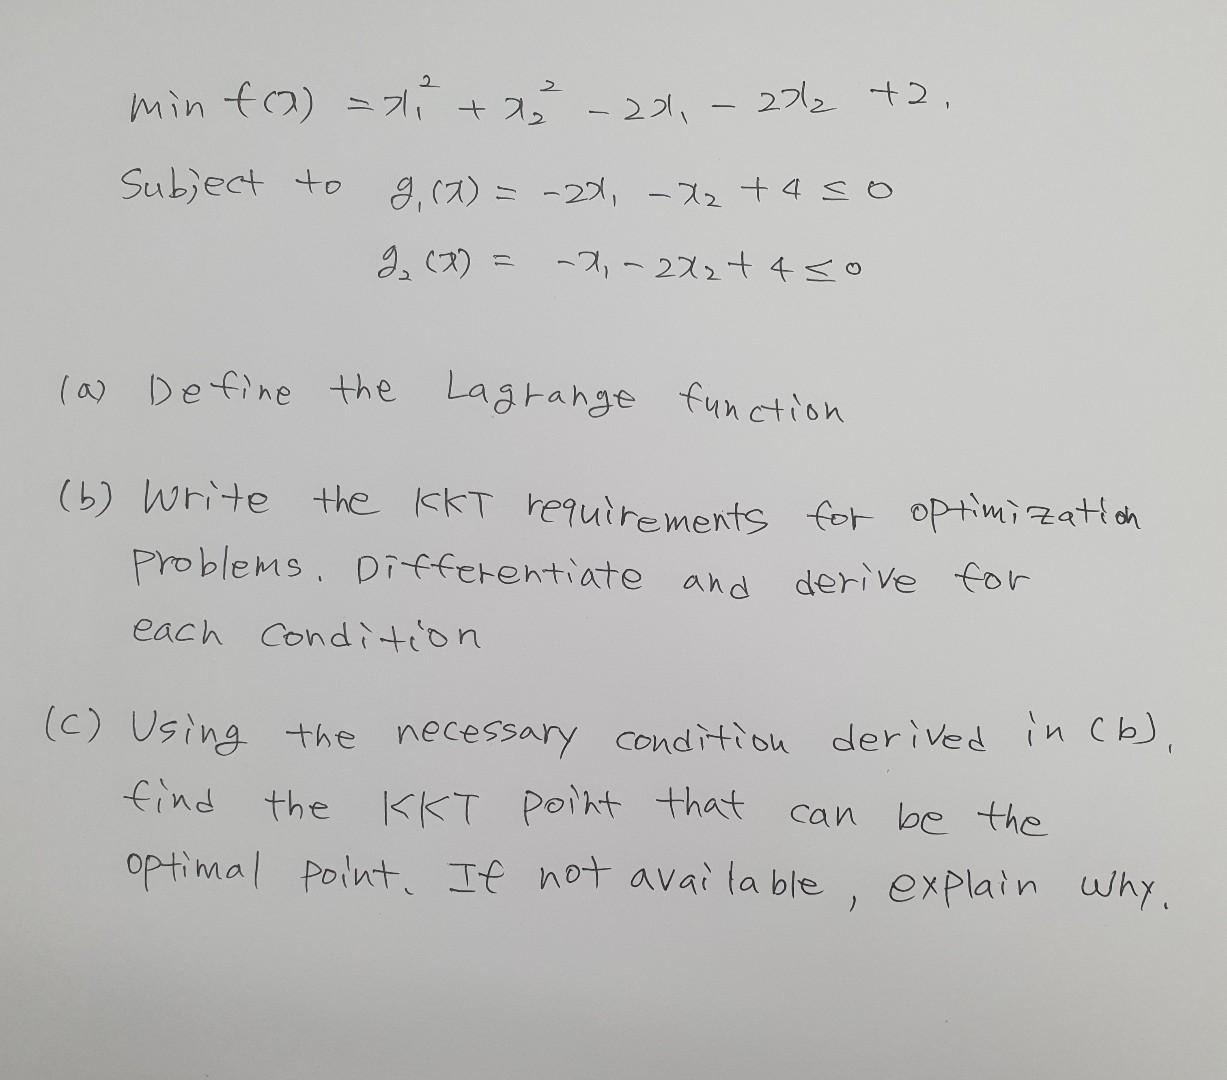 min f(x) = x₁² + x₂² - 2x₁ - 2x₂ + 2,
Subject to g₁(x) = -2x₁ - x₂ + 4 ≤ 0
g₂(x) = -x₁ - 2x₂ + 4 ≤ 0
(a) Define the Lagrange function
(b) Write the KKT requirements for optimization
problems. Differentiate and derive for
each condition
(c) Using the necessary condition derived in (b),
find the KKT point that can be the
optimal point. If not available, explain why.